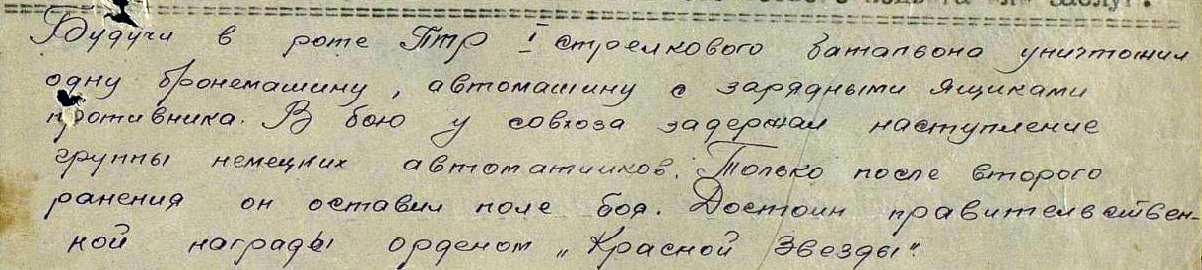 Будучи в роте ПТР I стрелкового батальона уничтожил
одну бронемашину, автомашину с зарядными ящиками
противника. В бою у совхоза задержал наступление
группы немецких автоматчиков. Только после второго
ранения он оставил поле боя. Достоин правительствен-
ной награды орденом „Красной Звезды".